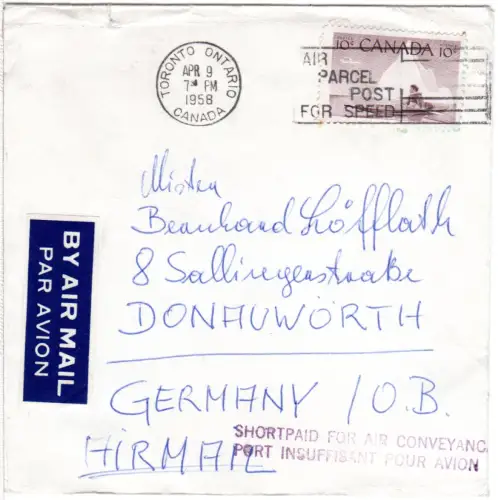 TORONTO ONTARIO
APR 9
7 PM
1958
CANADA
10¢ CANADA 10¢
AIR
PARCEL
POST
FOR SPEED
Mister
Bernhard Löfflath
8 Sallingerstraße
DONAUWÖRTH
GERMANY / O.B.
AIRMAIL
BY AIR MAIL
PAR AVION
SHORTPAID FOR AIR CONVEYANC
PORT INSUFFISANT POUR AVION